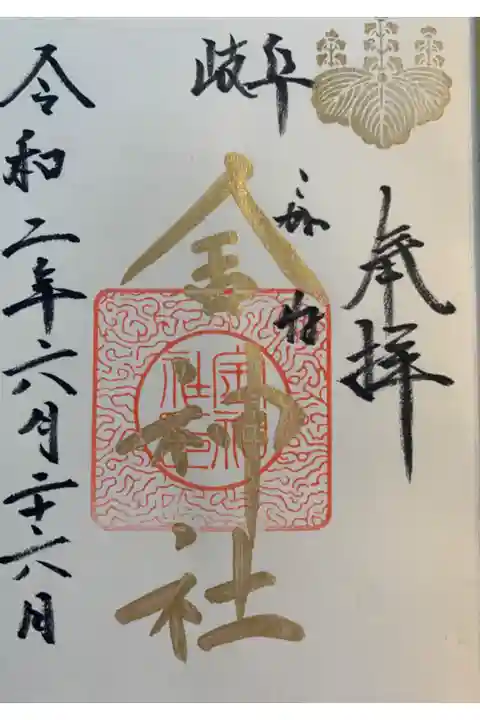 奉拝
岐阜
金神社
金神社印
令和二年六月二十六日